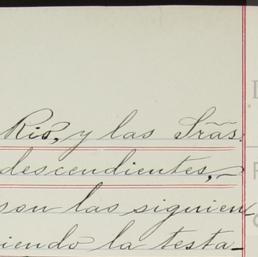 Rio, y las Srãs:
descendientes,~
son las siguien-
iendo la testa-